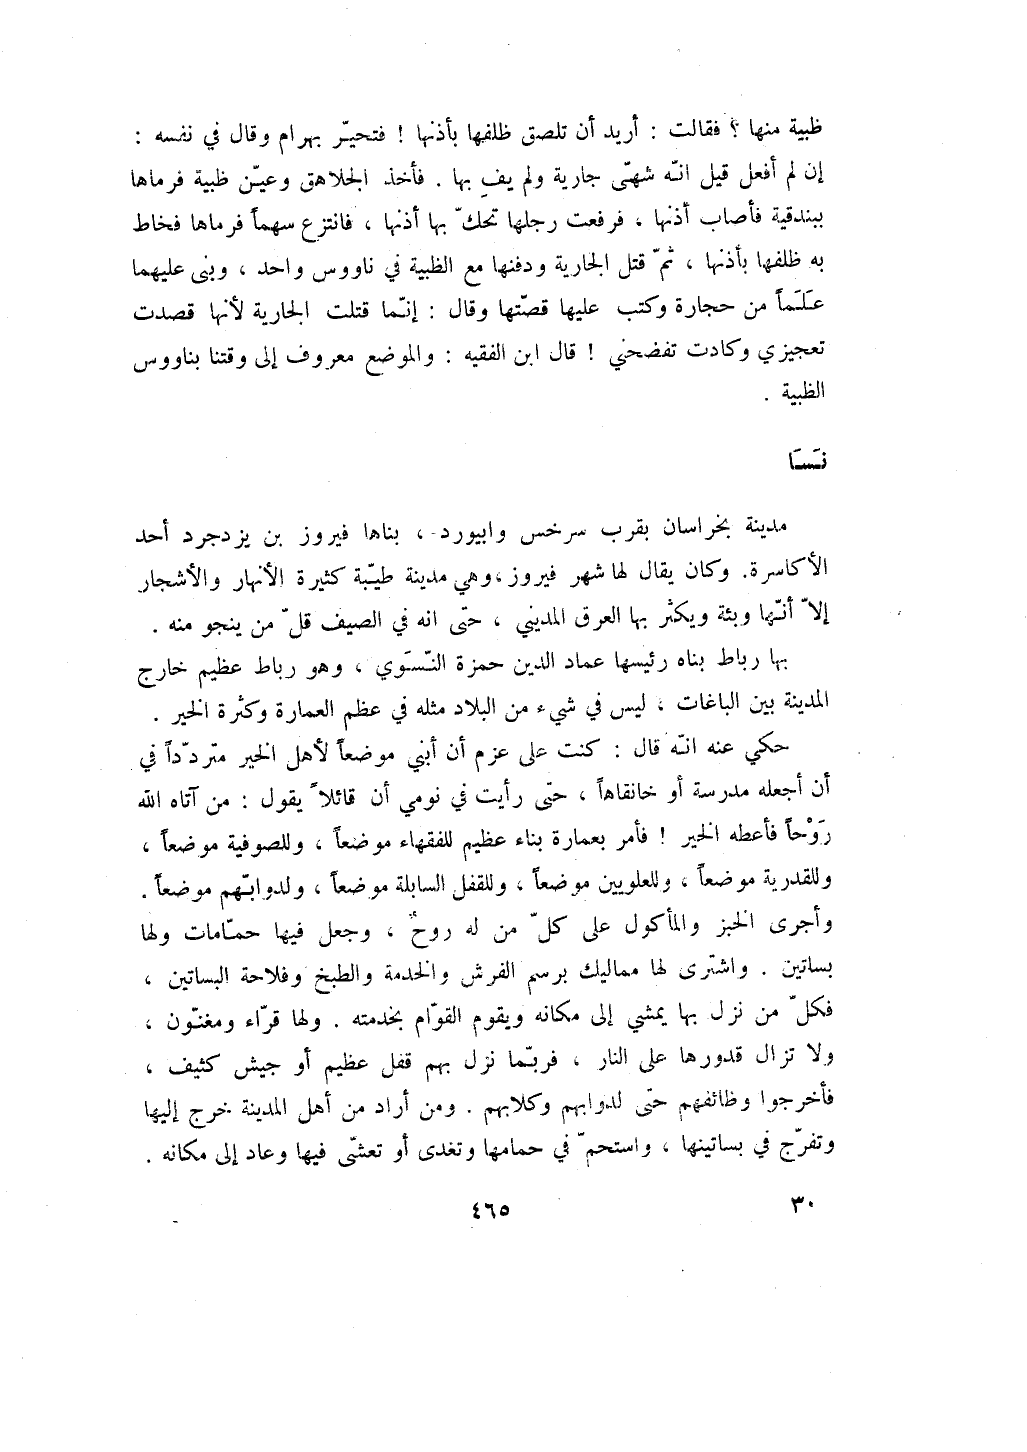 ظبية منها ؟ فقالت : أريد أن تلصق ظلفها بأذنها ! فتحيّر بهرام وقال في نفسه :
إن لم أفعل قيل انّه شهّى جارية ولم يفِ بها . فأخذ الجلاهق وعيّن ظبية فرماها
ببندقية فأصاب أذنها ، فرفعت رجلها تحكّ بها أذنها ، فانتزع سهماً فرماها فخاط
به ظلفها بأذنها ، ثمّ قتل الجارية ودفنها مع الظبية في ناووس واحد ، وبنى عليهما
عَلَماً من حجارة وكتب عليها قصّتها وقال : إنّما قتلت الجارية لأنها قصدت
تعجيزي وكادت تفضحني ! قال ابن الفقيه : والموضع معروف إلى وقتنا بناووس
الظبية .
نَسَا
مدينة بخراسان بقرب سرخس وابيورد ، بناها فيروز بن يزدجرد أحد
الأكاسرة. وكان يقال لها شهر فيروز ،وهي مدينة طيّبة كثيرة الأنهار والأشجار
إلاّ أنّها وبئة ويكثر بها العرق المديني ، حتّى انه في الصيف قلّ من ينجو منه .
بها رباط بناه رئيسها عماد الدين حمزة النّسَوي ، وهو رباط عظيم خارج
المدينة بين الباغات ، ليس في شيء من البلاد مثله في عظم العمارة وكثرة الخير .
حكي عنه انّه قال : كنت على عزم أن أبني موضعاً لأهل الخير متردّداً في
أن أجعله مدرسة أو خانقاهاً ، حتّى رأيت في نومي أن قائلاً يقول : من آتاه الله
رَوْحاً فأعطه الخير ! فأمر بعمارة بناء عظيم للفقهاء موضعاً ، وللصوفية موضعاً ،
وللقدرية موضعاً ، وللعلويين موضعاً ، وللقفل السابلة موضعاً ، ولدوابّهم موضعاً .
وأجرى الخبز والمأكول على كلّ من له روحٌ ، وجعل فيها حمّامات ولها
بساتين . واشترى لها مماليك برسم الفرش والخدمة والطبخ وفلاحة البساتين ،
فكلّ من نزل بها يمشي إلى مكانه ويقوم القوّام بخدمته . ولها قرّاء ومغنّون ،
ولا تزال قدورها على النار ، فربّما نزل بهم قفل عظيم أو جيش كثيف ،
فأخرجوا وظائفهم حتّى لدوابهم وكلابهم . ومن أراد من أهل المدينة خرج إليها
وتفرّج في بساتينها ، واستحمّ في حمامها وتغدى أو تعشّى فيها وعاد إلى مكانه .
٣٠
٤٦٥